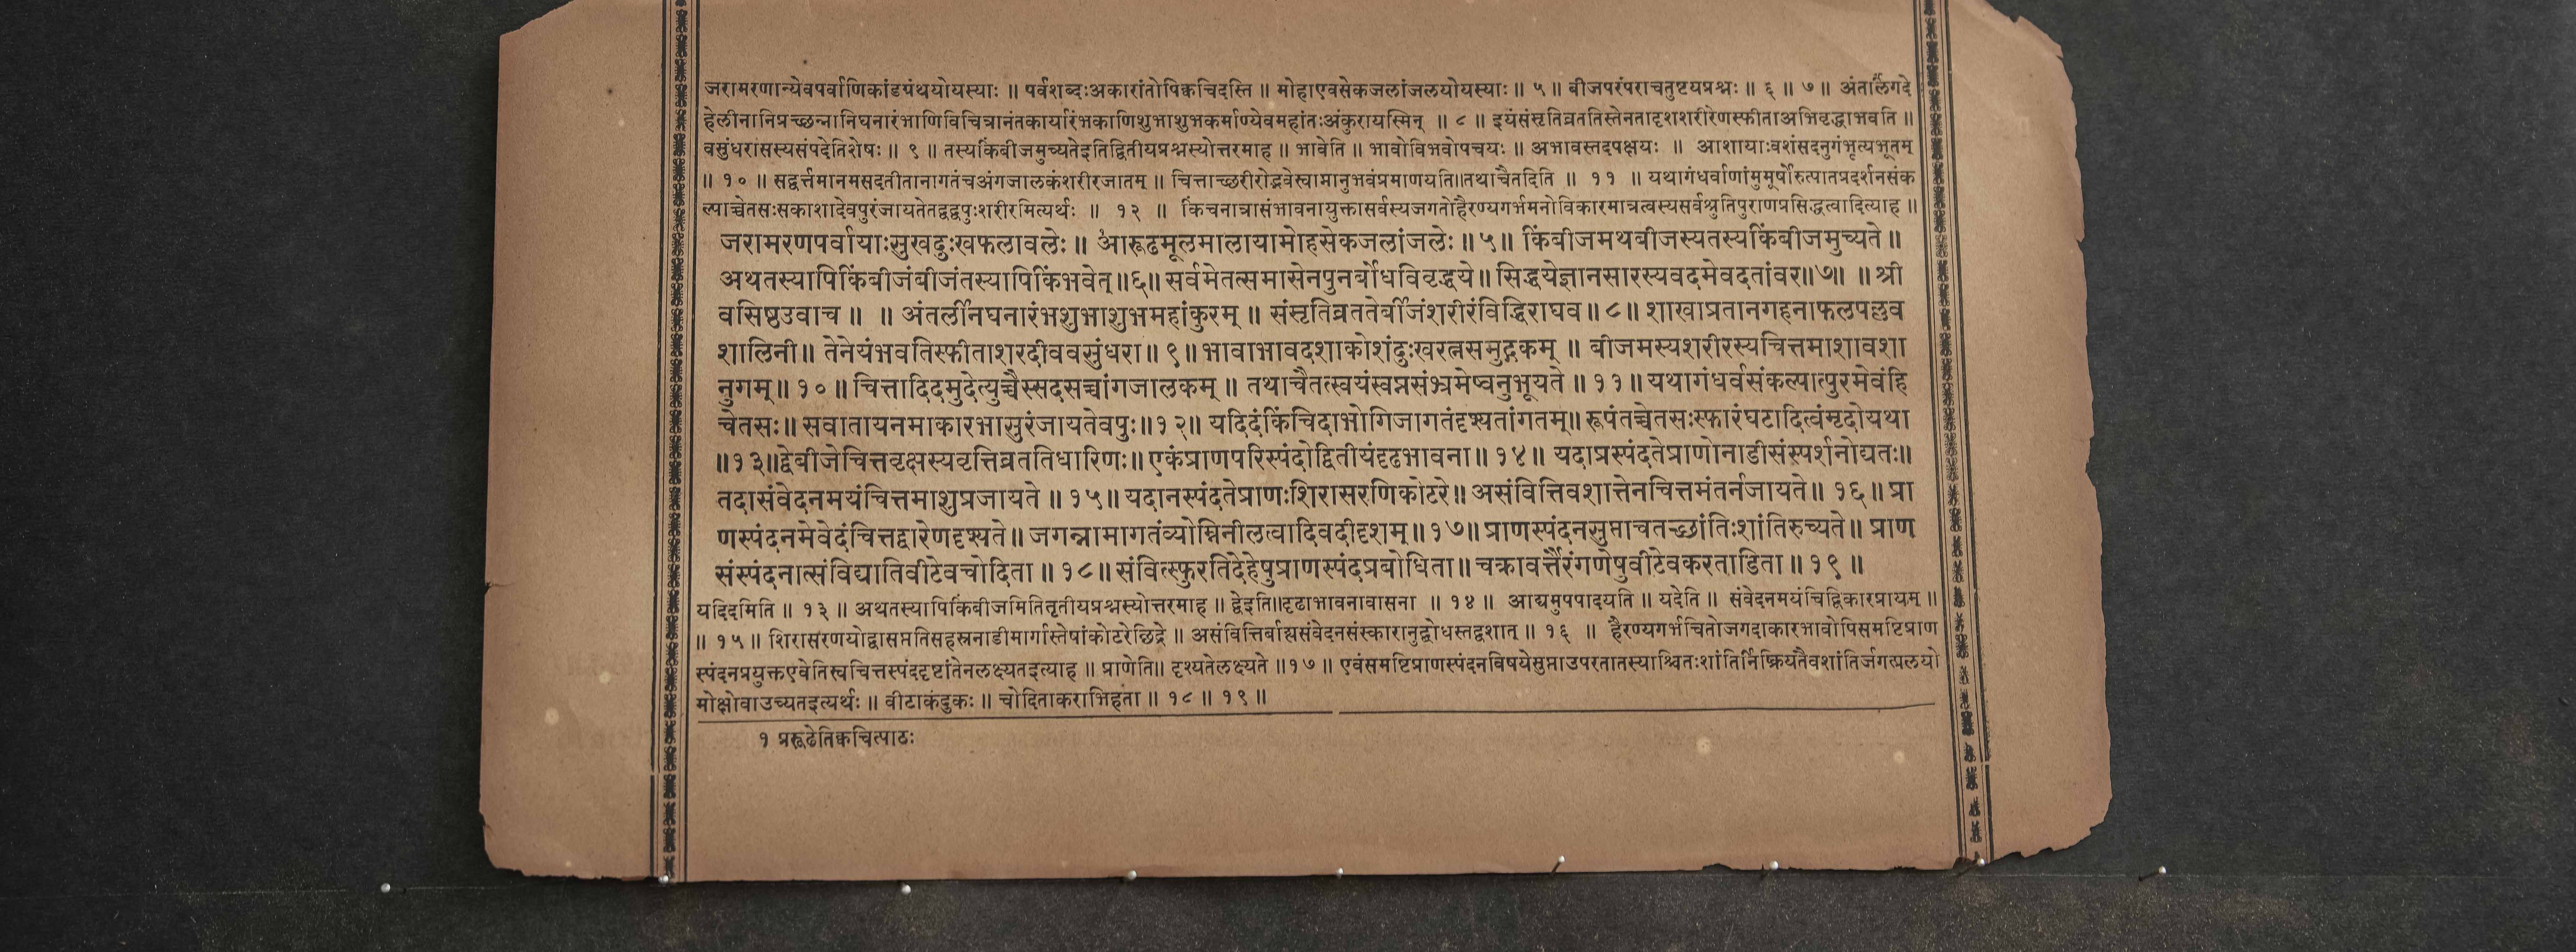 जरामरणान्येवपर्वाणिकांडग्रंथयोयस्याः ॥ पर्वशब्दःअकारांतोपिक्वचिदस्ति ॥ मोहाएवसेकजलांजलयोयस्याः ॥ ५ ॥ बीजपरंपराचतुष्टयप्रश्नः ॥ ६ ॥ ७ ॥ अंतर्लिंगदे
हेलीनानिप्रच्छन्नानिघनारंभाणिविचित्रानंतकार्यारंभकाणिशुभाशुभकर्माण्येवमहांतःअंकुरायस्मिन् ॥ ८ ॥ इयंसंसृतिव्रततिस्तेनतादृशशरीरेणस्फीताअभिवृद्धाभवति ॥
वसुंधरासस्यसंपदेतिशेषः ॥ ९ ॥ तस्यकिंबीजमुच्यतेइतिद्वितीयप्रश्नस्योत्तरमाह ॥ भावेति ॥ भावोविभवोपचयः ॥ अभावस्तदपक्षयः ॥ आशायाःवशंसदनुगंभृत्यभूतम्
॥ १० ॥ सद्वर्त्तमानमसदतीतानागतंचअंगजालकंशरीरजातम् ॥ चित्ताच्छरीरोद्भवेस्वाप्नानुभवंप्रमाणयति॥तथाचैतदिति ॥ ११ ॥ यथागंधर्वाणांमुमूर्षोरुत्पातप्रदर्शनसंक
ल्पाच्चेतसःसकाशादेवपुरंजायतेतद्वद्वपुःशरीरमित्यर्थः ॥ १२ ॥ किंचनात्रासंभावनायुक्तासर्वस्यजगतोहैरण्यगर्भमनोविकारमात्रत्वस्यसर्वश्रुतिपुराणप्रसिद्धत्वादित्याह ॥
जरामरणपर्वायाःसुखदुःखफलावलेः ॥ १आरूढमूलमालायामोहसेकजलांजलेः ॥ ५॥ किंबीजमथबीजस्यतस्यकिंबीजमुच्यते ॥
अथतस्यापिकिंबीजंबीजंतस्यापिकिंभवेत् ॥६॥ सर्वमेतत्समासेनपुनर्बोधविवृद्धये॥ सिद्धयेज्ञानसारस्यवदमेवदतांवर॥७॥ ॥ श्री
वसिष्ठउवाच ॥ ॥ अंतर्लीनघनारंभशुभाशुभमहांकुरम् ॥ संसृतिव्रततेर्बीजंशरीरंविद्धिराघव ॥ ८॥ शाखाप्रतानगहनाफलपल्लव
शालिनी॥ तेनेयंभवतिस्फीताशरदीववसुंधरा॥ ९॥ भावाभावदशाकोशंदुःखरत्नसमुद्गकम् ॥ बीजमस्यशरीरस्यचित्तमाशावशा
नुगम्॥ १०॥ चित्तादिदमुदेत्युच्चैस्सदसच्चांगजालकम् ॥ तथाचैतत्स्वयंस्वप्नसंभ्रमेष्वनुभूयते ॥ ११॥ यथागंधर्वसंकल्पात्पुरमेवंहि
चेतसः॥ सवातायनमाकारभासुरंजायतेवपुः॥१२॥ यदिदंकिंचिदाभोगिजागतंदृश्यतांगतम्॥ रूपंतच्चेतसःस्फारंघटादित्वंमृदोयथा
॥१३॥द्वेबीजेचित्तवृक्षस्यवृत्तिव्रततिधारिणः॥ एकंप्राणपरिस्पंदोद्वितीयंदृढभावना॥ १४॥ यदाप्रस्पंदतेप्राणोनाडीसंस्पर्शनोद्यतः॥
तदासंवेदनमयंचित्तमाशुप्रजायते ॥ १५॥ यदानस्पंदतेप्राणःशिरासरणिकोटरे॥ असंवित्तिवशात्तेनचित्तमंतर्नजायते॥ १६॥ प्रा
णस्पंदनमेवेदंचित्तद्वारेणदृश्यते॥ जगन्नामागतंव्योम्निनीलत्वादिवदीदृशम्॥१७॥ प्राणस्पंदनसुप्ताचतच्छांतिःशांतिरुच्यते॥ प्राण
संस्पंदनात्संविद्यातिवीटेवचोदिता ॥ १८॥ संवित्स्फुरतिदेहेषुप्राणस्पंदप्रबोधिता॥ चक्रावर्त्तैरंगणेषुवीटेवकरताडिता ॥ १९ ॥
यदिदमिति ॥ १३ ॥ अथतस्यापिकिंबीजमितितृतीयप्रश्नस्योत्तरमाह ॥ द्वेइति॥दृढाभावनावासना ॥ १४ ॥ आद्यमुपपादयति ॥ यदेति ॥ संवेदनमयंचिद्विकारप्रायम् ॥
॥ १५ ॥ शिरासरणयोद्वासप्ततिसहस्रनाडीमार्गास्तेषांकोटरेछिद्रे ॥ असंवित्तिर्बाह्यसंवेदनसंस्कारानुद्बोधस्तद्वशात् ॥ १६ ॥ हैरण्यगर्भचितोजगदाकारभावोपिसमष्टिप्राण
स्पंदनप्रयुक्तएवेतिस्वचित्तस्पंददृष्टांतेनलक्ष्यतइत्याह ॥ प्राणेति॥ दृश्यतेलक्ष्यते ॥१७॥ एवंसमष्टिप्राणस्पंदनविषयेसुप्ताउपरतातस्याश्चितःशांतिर्निष्क्रियतैवशांतिर्जगत्प्रलयो
मोक्षोवाउच्यतइत्यर्थः ॥ वीटाकंदुकः ॥ चोदिताकराभिहता ॥ १८ ॥ १९ ॥
१ प्ररूढेतिक्वचित्पाठः